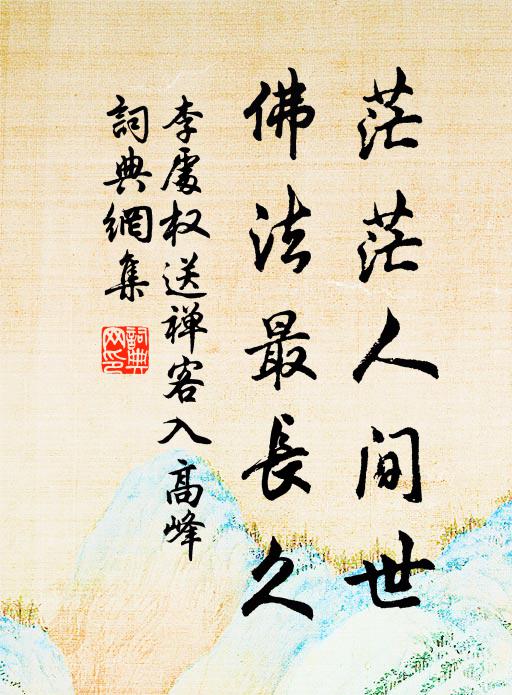 茫茫人间世
佛法最長久
李處权送禅客入高峰
詞典網集
詞典
网印